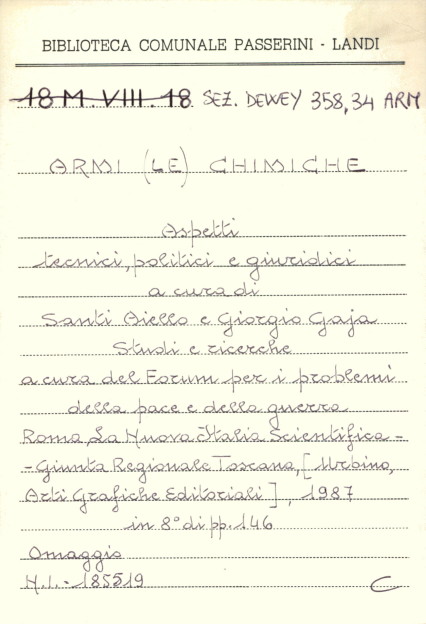 BIBLIOTECA COMUNALE PASSERINI - LANDI
18 M. VIII. 18 SEZ. DEWEY 358,34 ARM
ARMI (LE) CHIMICHE
Aspetti
tecnici, politici e giuridici
a cura di
Santi Aiello e Giorgio Gaja
Studi e ricerche
a cura del Forum per i problemi
della pace e della guerra
Roma, La Nuova Italia Scientifica -
- Giunta Regionale Toscana, [Urbino,
Arti Grafiche Editoriali], 1987
in 8° di pp. 146
Omaggio
N.I. - 185519
C